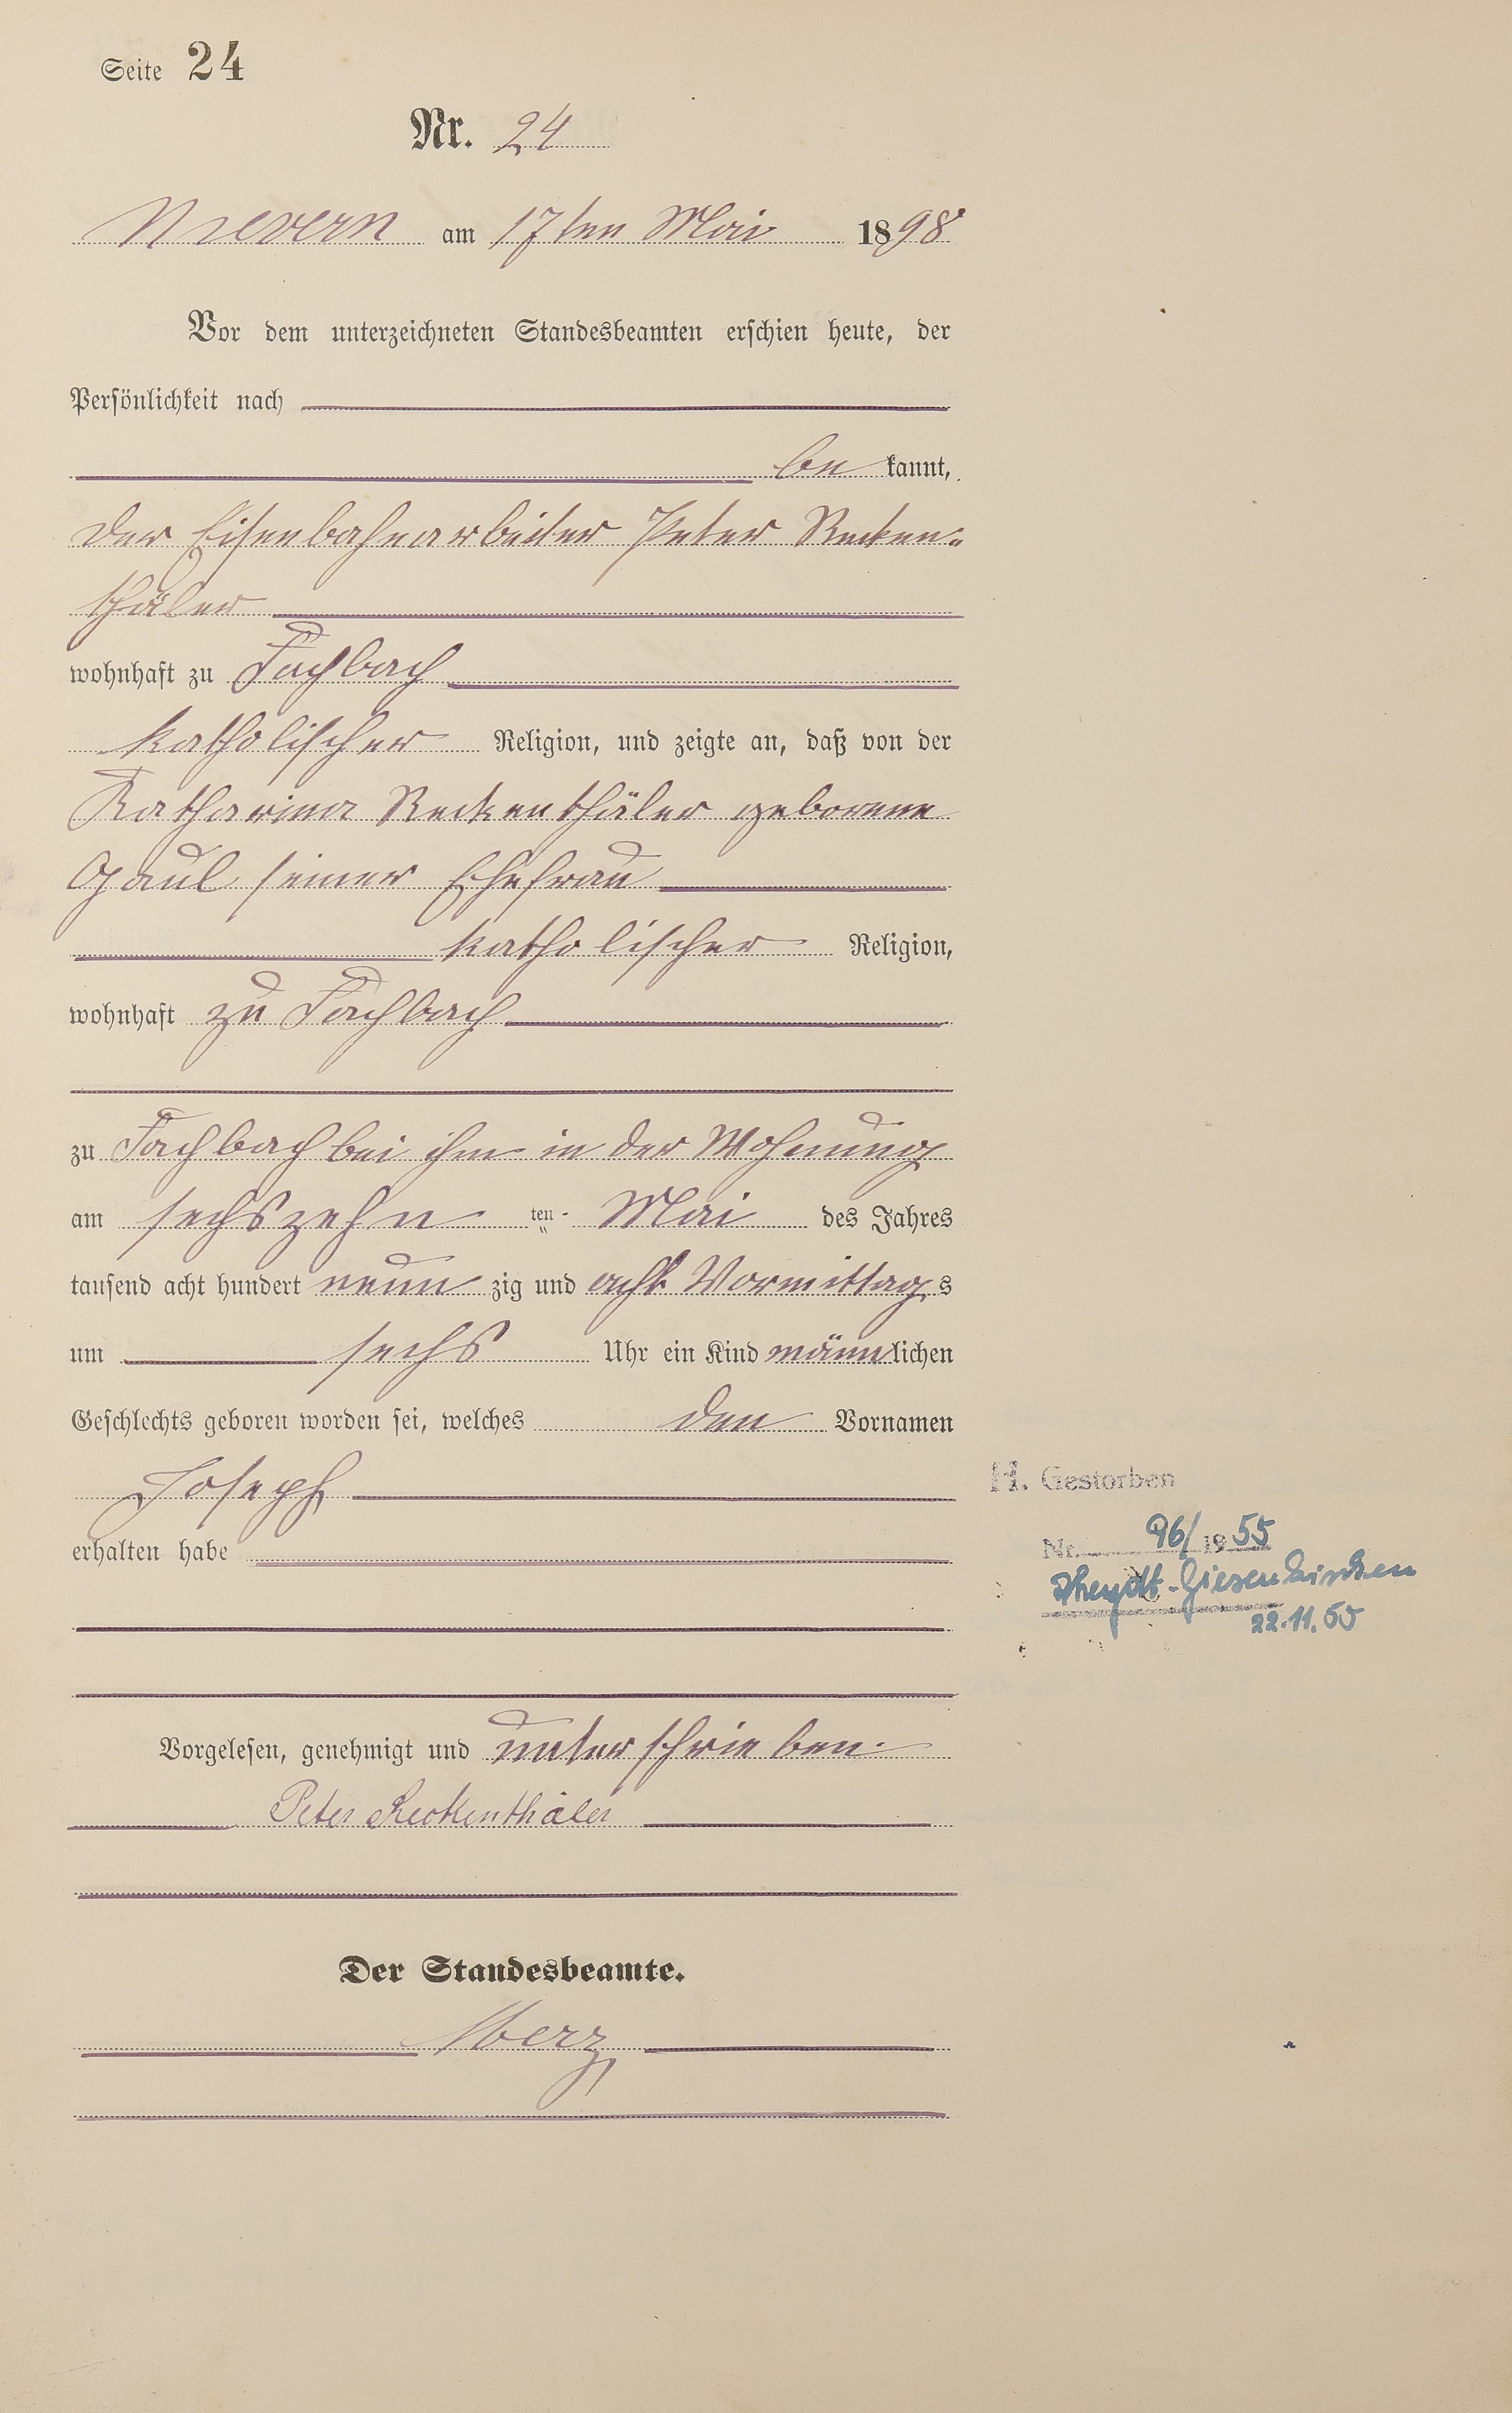 Seite 24
Nr. 24
Nievern am 17ten Mai 1898
Vor dem unterzeichneten Standesbeamten erschien heute, der
Persönlichkeit nach
be kannt,
der Eisenbahnarbeiter Peter Recken-
thäler
wohnhaft zu Fachbach
katholischer Religion, und zeigte an, daß von der
Katharina Reckenthäler geborene
Gaul seiner Ehefrau
katholischer Religion,
wohnhaft zu Fachbach
zu Fachbach bei ihm in der Wohnung
am sechszehn ten Mai des Jahres
tausend acht hundert neun zig und acht Vormittag s
um sechs Uhr ein Kind männlichen
Geschlechts geboren worden sei, welches den Vornamen
Joseph
H. Gestorben
erhalten habe
Nr. 96/1955
Rheydt-Giesenkirchen
22.11.55
Vorgelesen, genehmigt und unterschrieben.
Peter Reckenthäler
Der Standesbeamte.